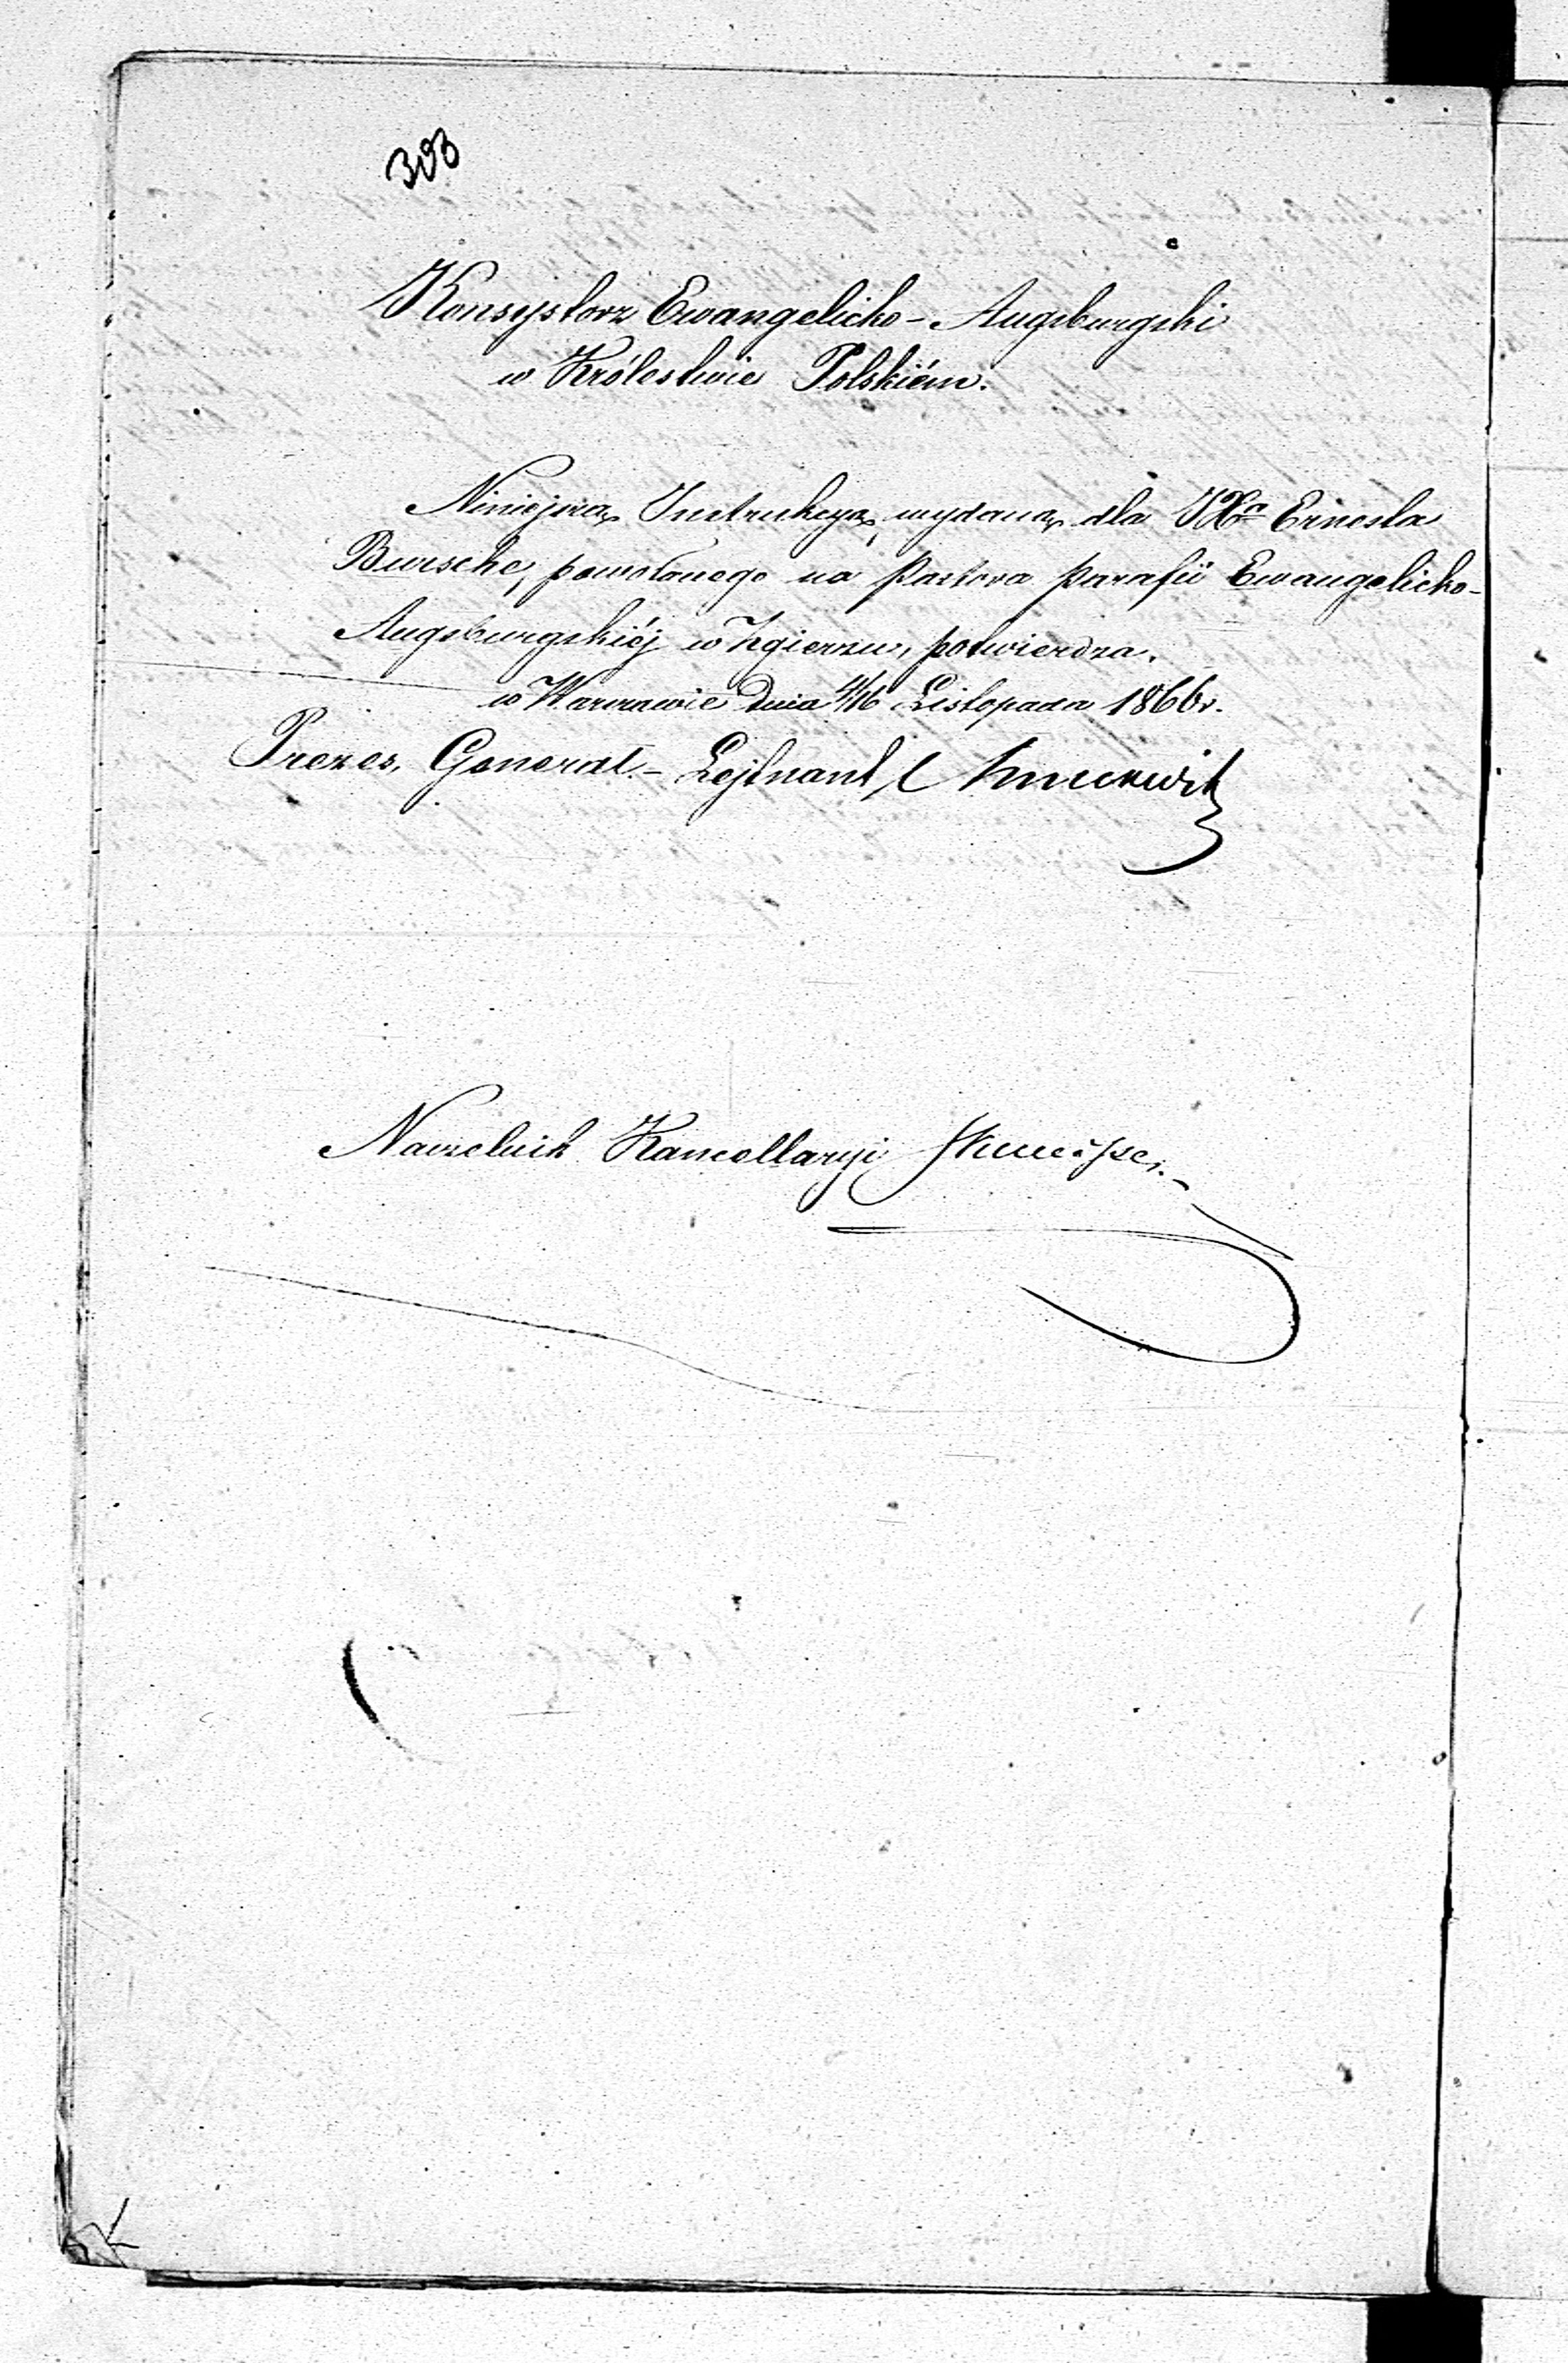 303
Konsystorz Ewangelicko-Augsburgski
w Królestwie Polskiém.
Niniejszą Instrukcyą, wydaną dla JXa Ernesta
Bursche, powołanego na Pastora Parafii Ewangelicko-
Augsburgskiéj w Zgierzu, potwierdza.
w Warszawie dnia 4/16 Listopada 1866 r.
Prezes, Generał-Lejtnant,
Naczelnik Kancellaryi